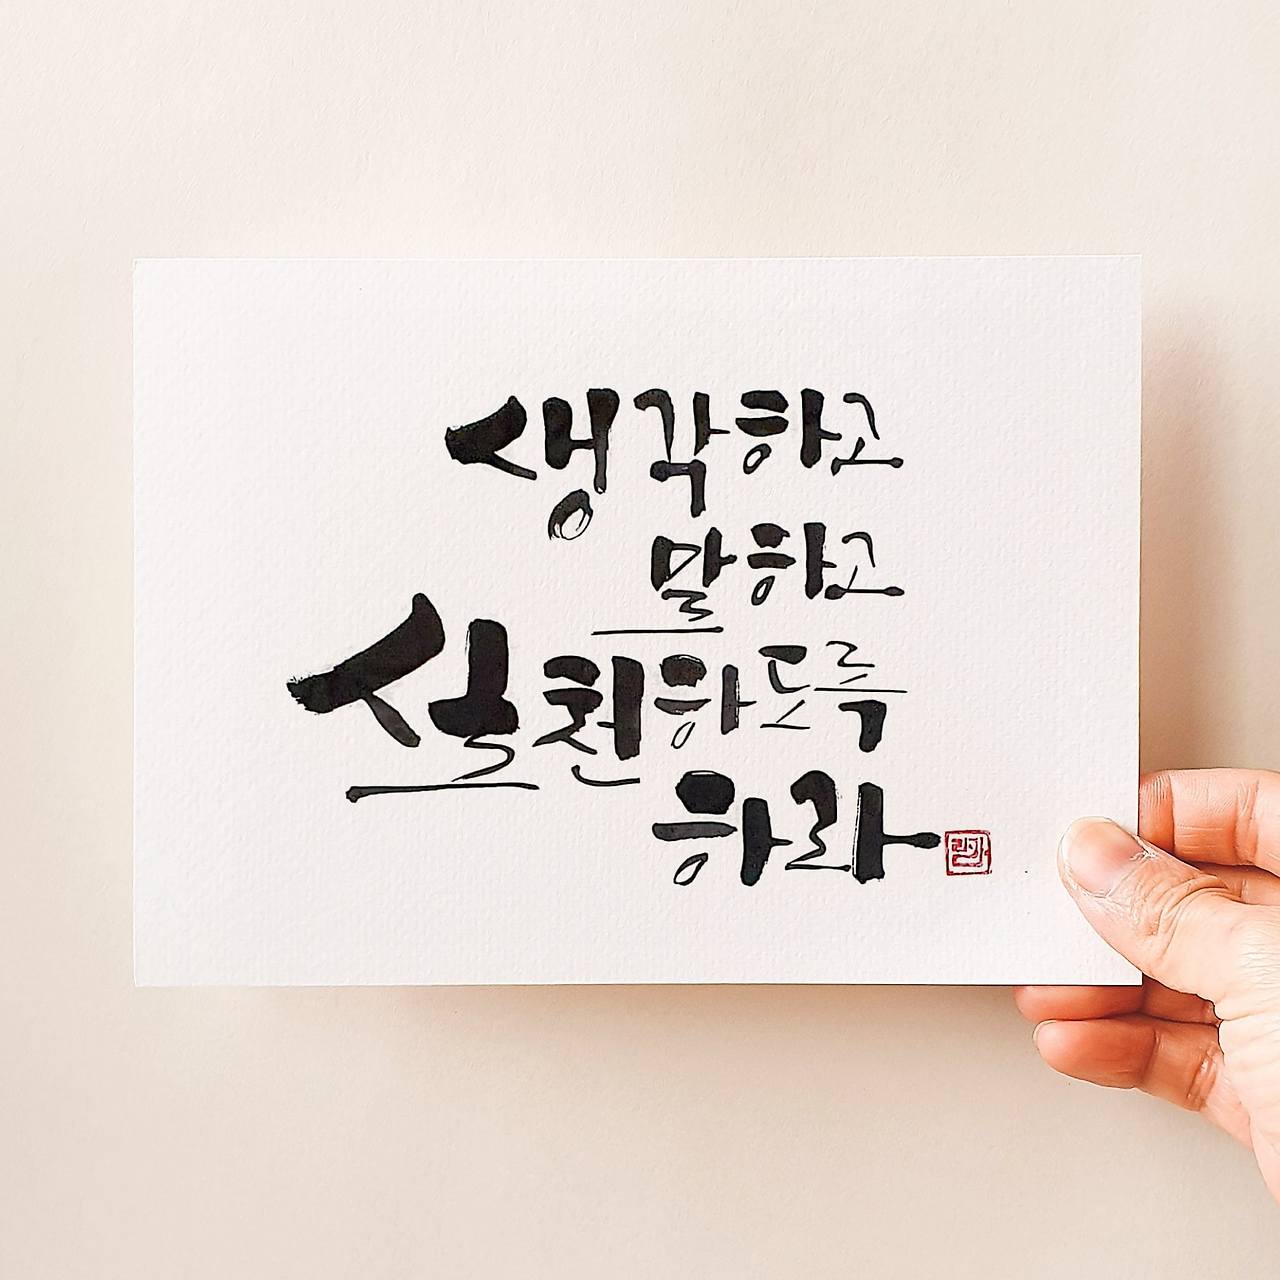 생각하고
말하고
실천하도록
하라